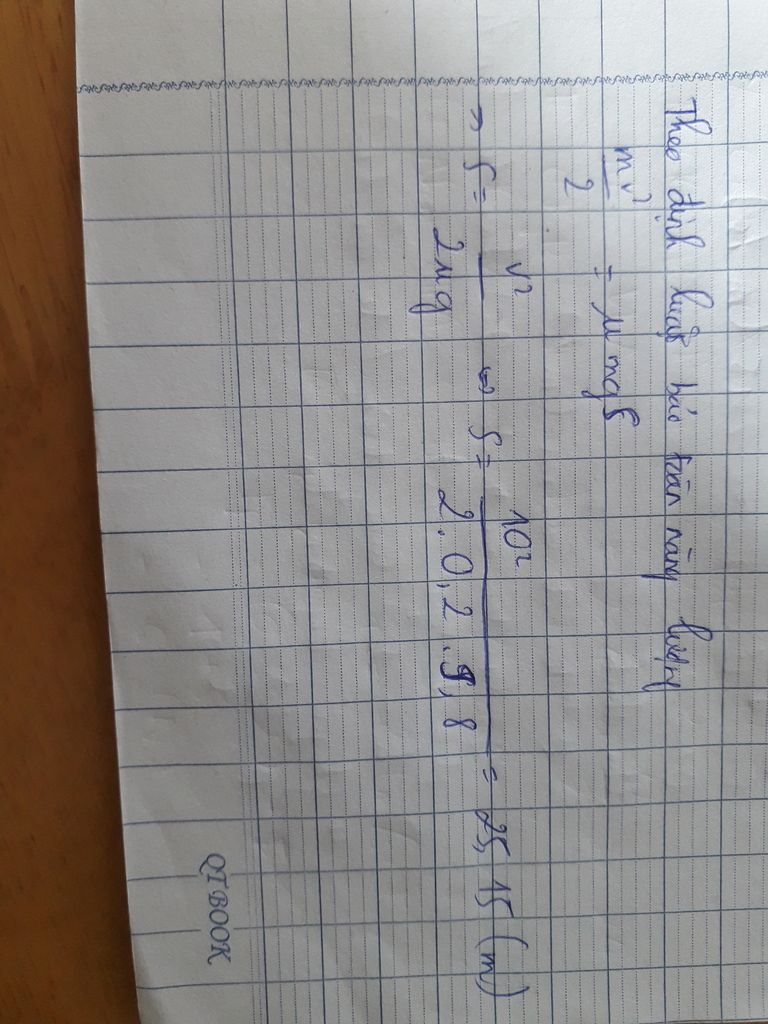 Theo định luật bảo toàn năng lượng
mv²/2 = μmgS
⇒ S = v²/2μg ⇔ S = 10²/2.0,2.9,8 = 25,15 (m)
QTBOOK